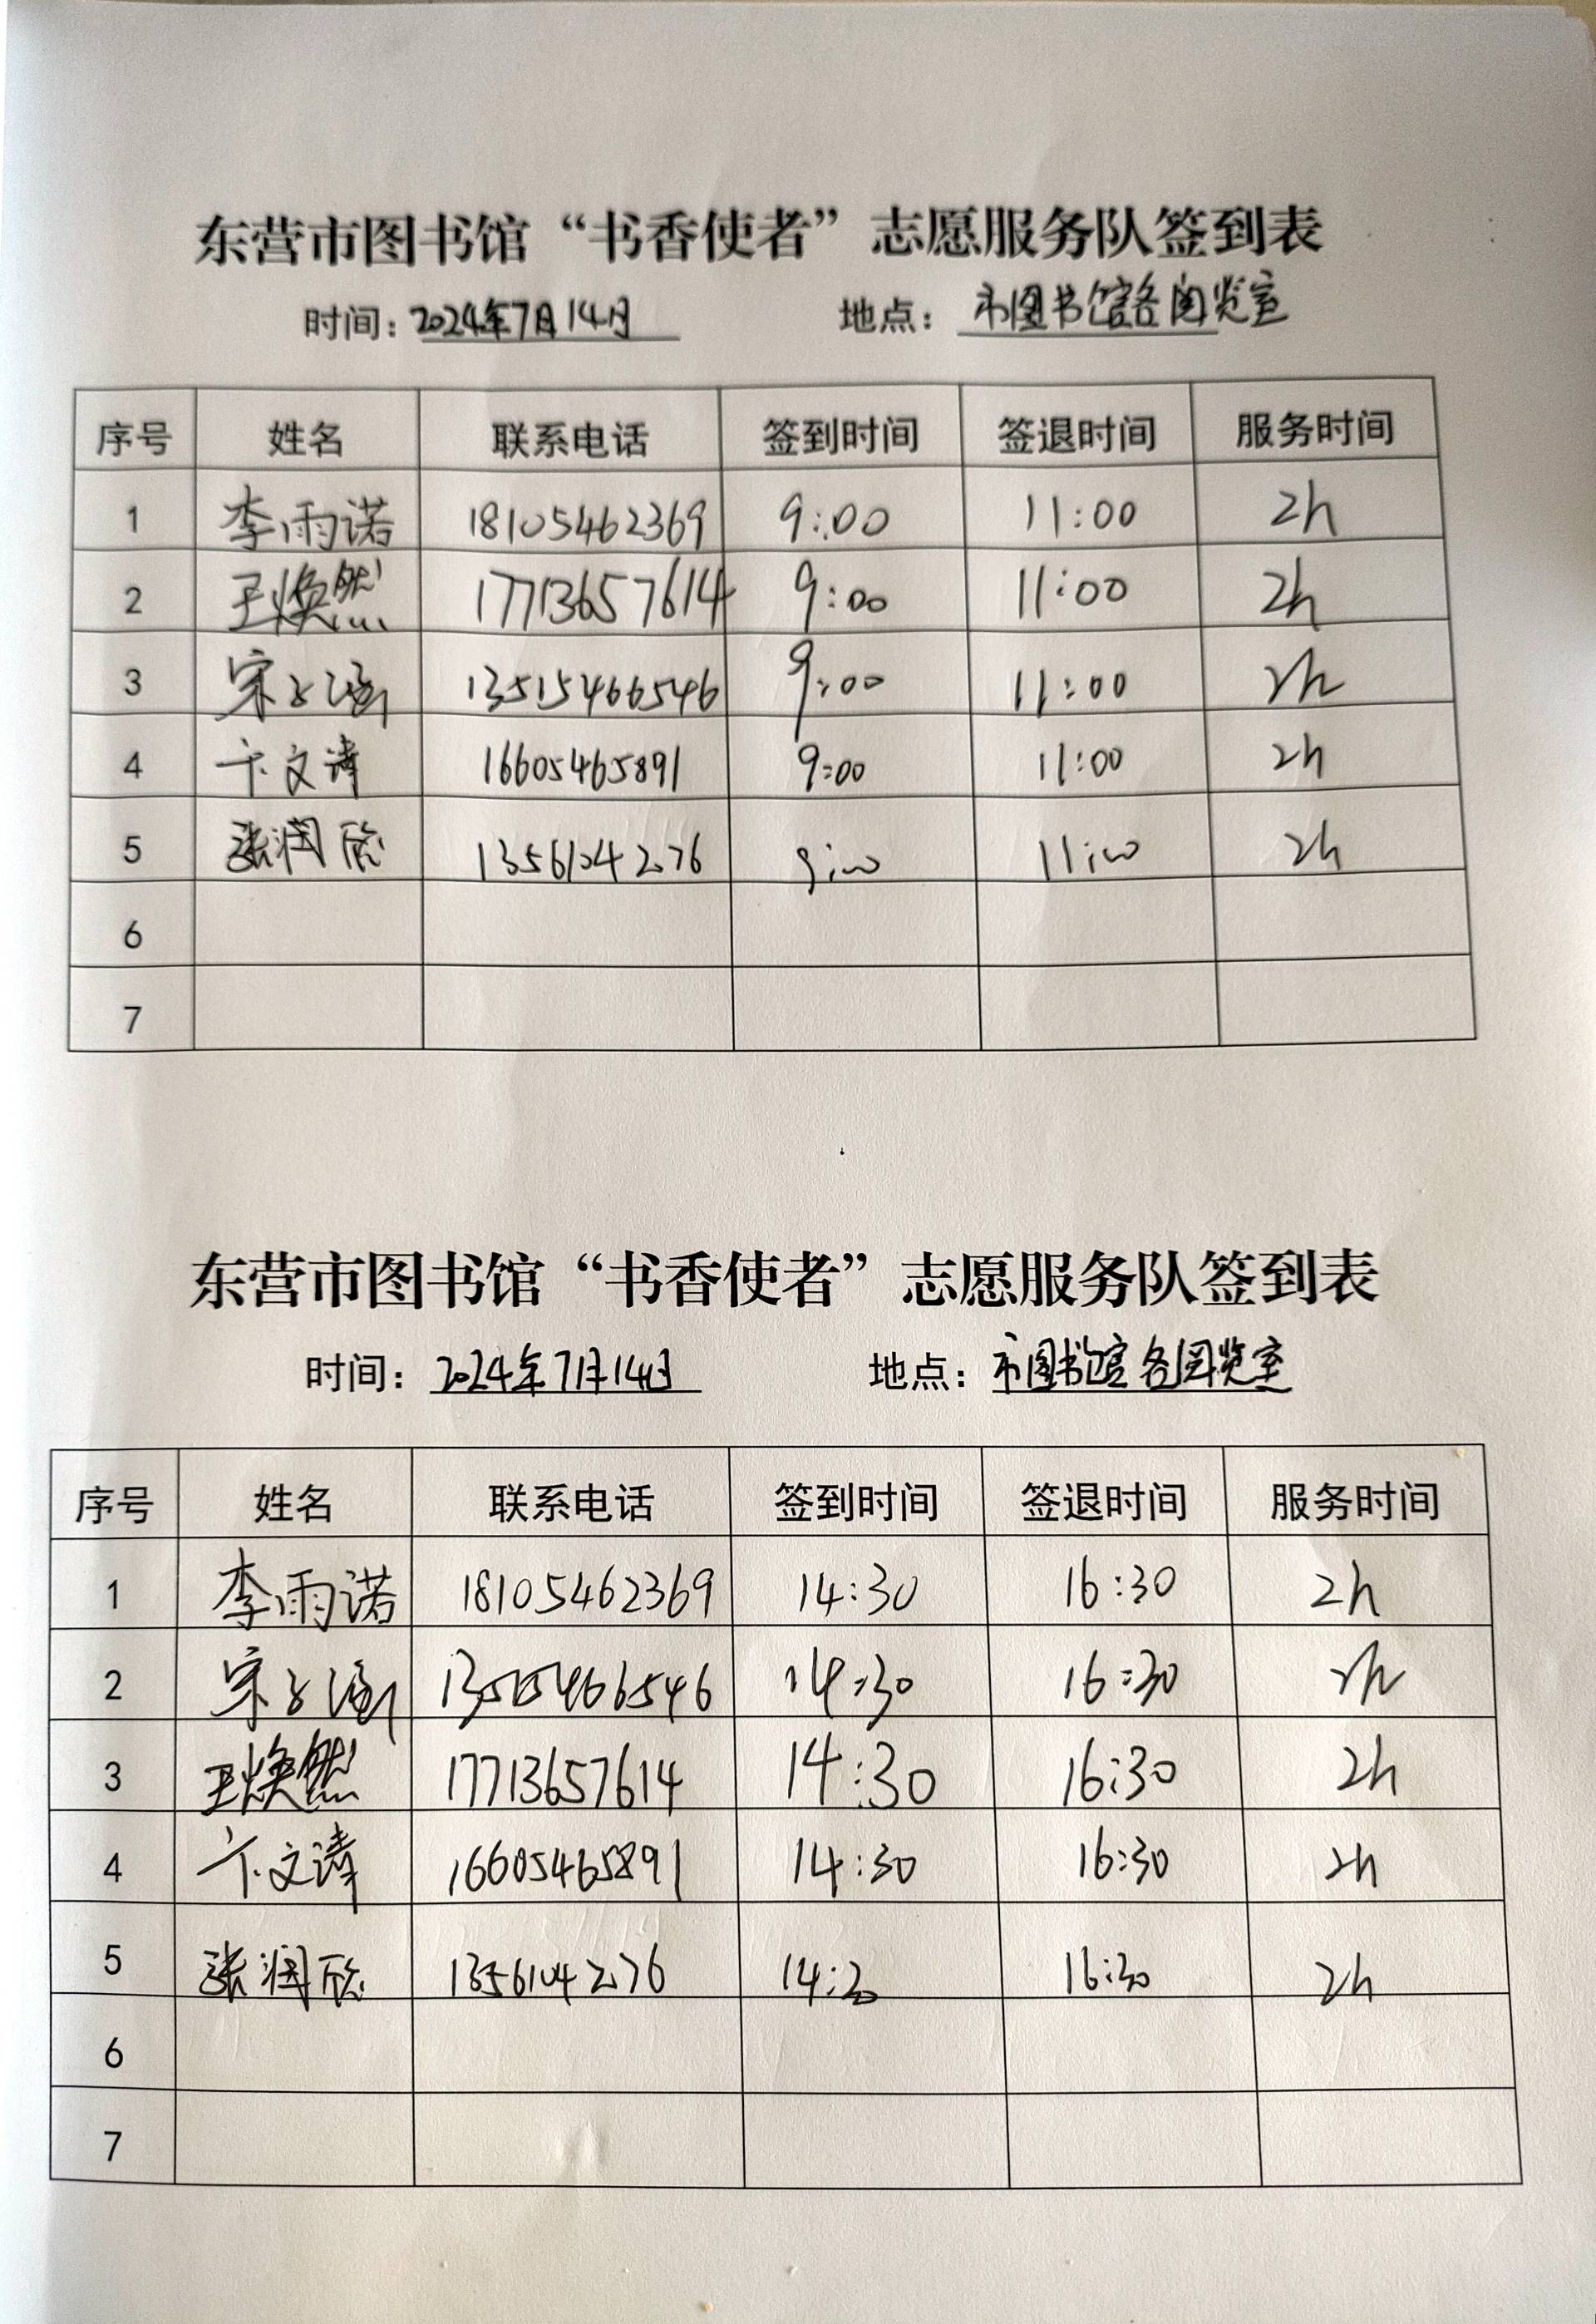 东营市图书馆“书香使者”志愿服务队签到表
时间：2024年7月14日 地点：市图书馆各阅览室
序号 姓名 联系电话 签到时间 签退时间 服务时间
1 李雨诺 18105462369 9:00 11:00 2h
2 王焕然 17713657614 9:00 11:00 2h
3 宋子涵 13515466546 9:00 11:00 2h
4 卞文涛 16605465891 9:00 11:00 2h
5 张润欣 13561042276 9:00 11:00 2h
6
7
东营市图书馆“书香使者”志愿服务队签到表
时间：2024年7月14日 地点：市图书馆各阅览室
序号 姓名 联系电话 签到时间 签退时间 服务时间
1 李雨诺 18105462369 14:30 16:30 2h
2 宋子涵 13515466546 14:30 16:30 2h
3 王焕然 17713657614 14:30 16:30 2h
4 卞文涛 16605465891 14:30 16:30 2h
5 张润欣 13561042276 14:30 16:30 2h
6
7